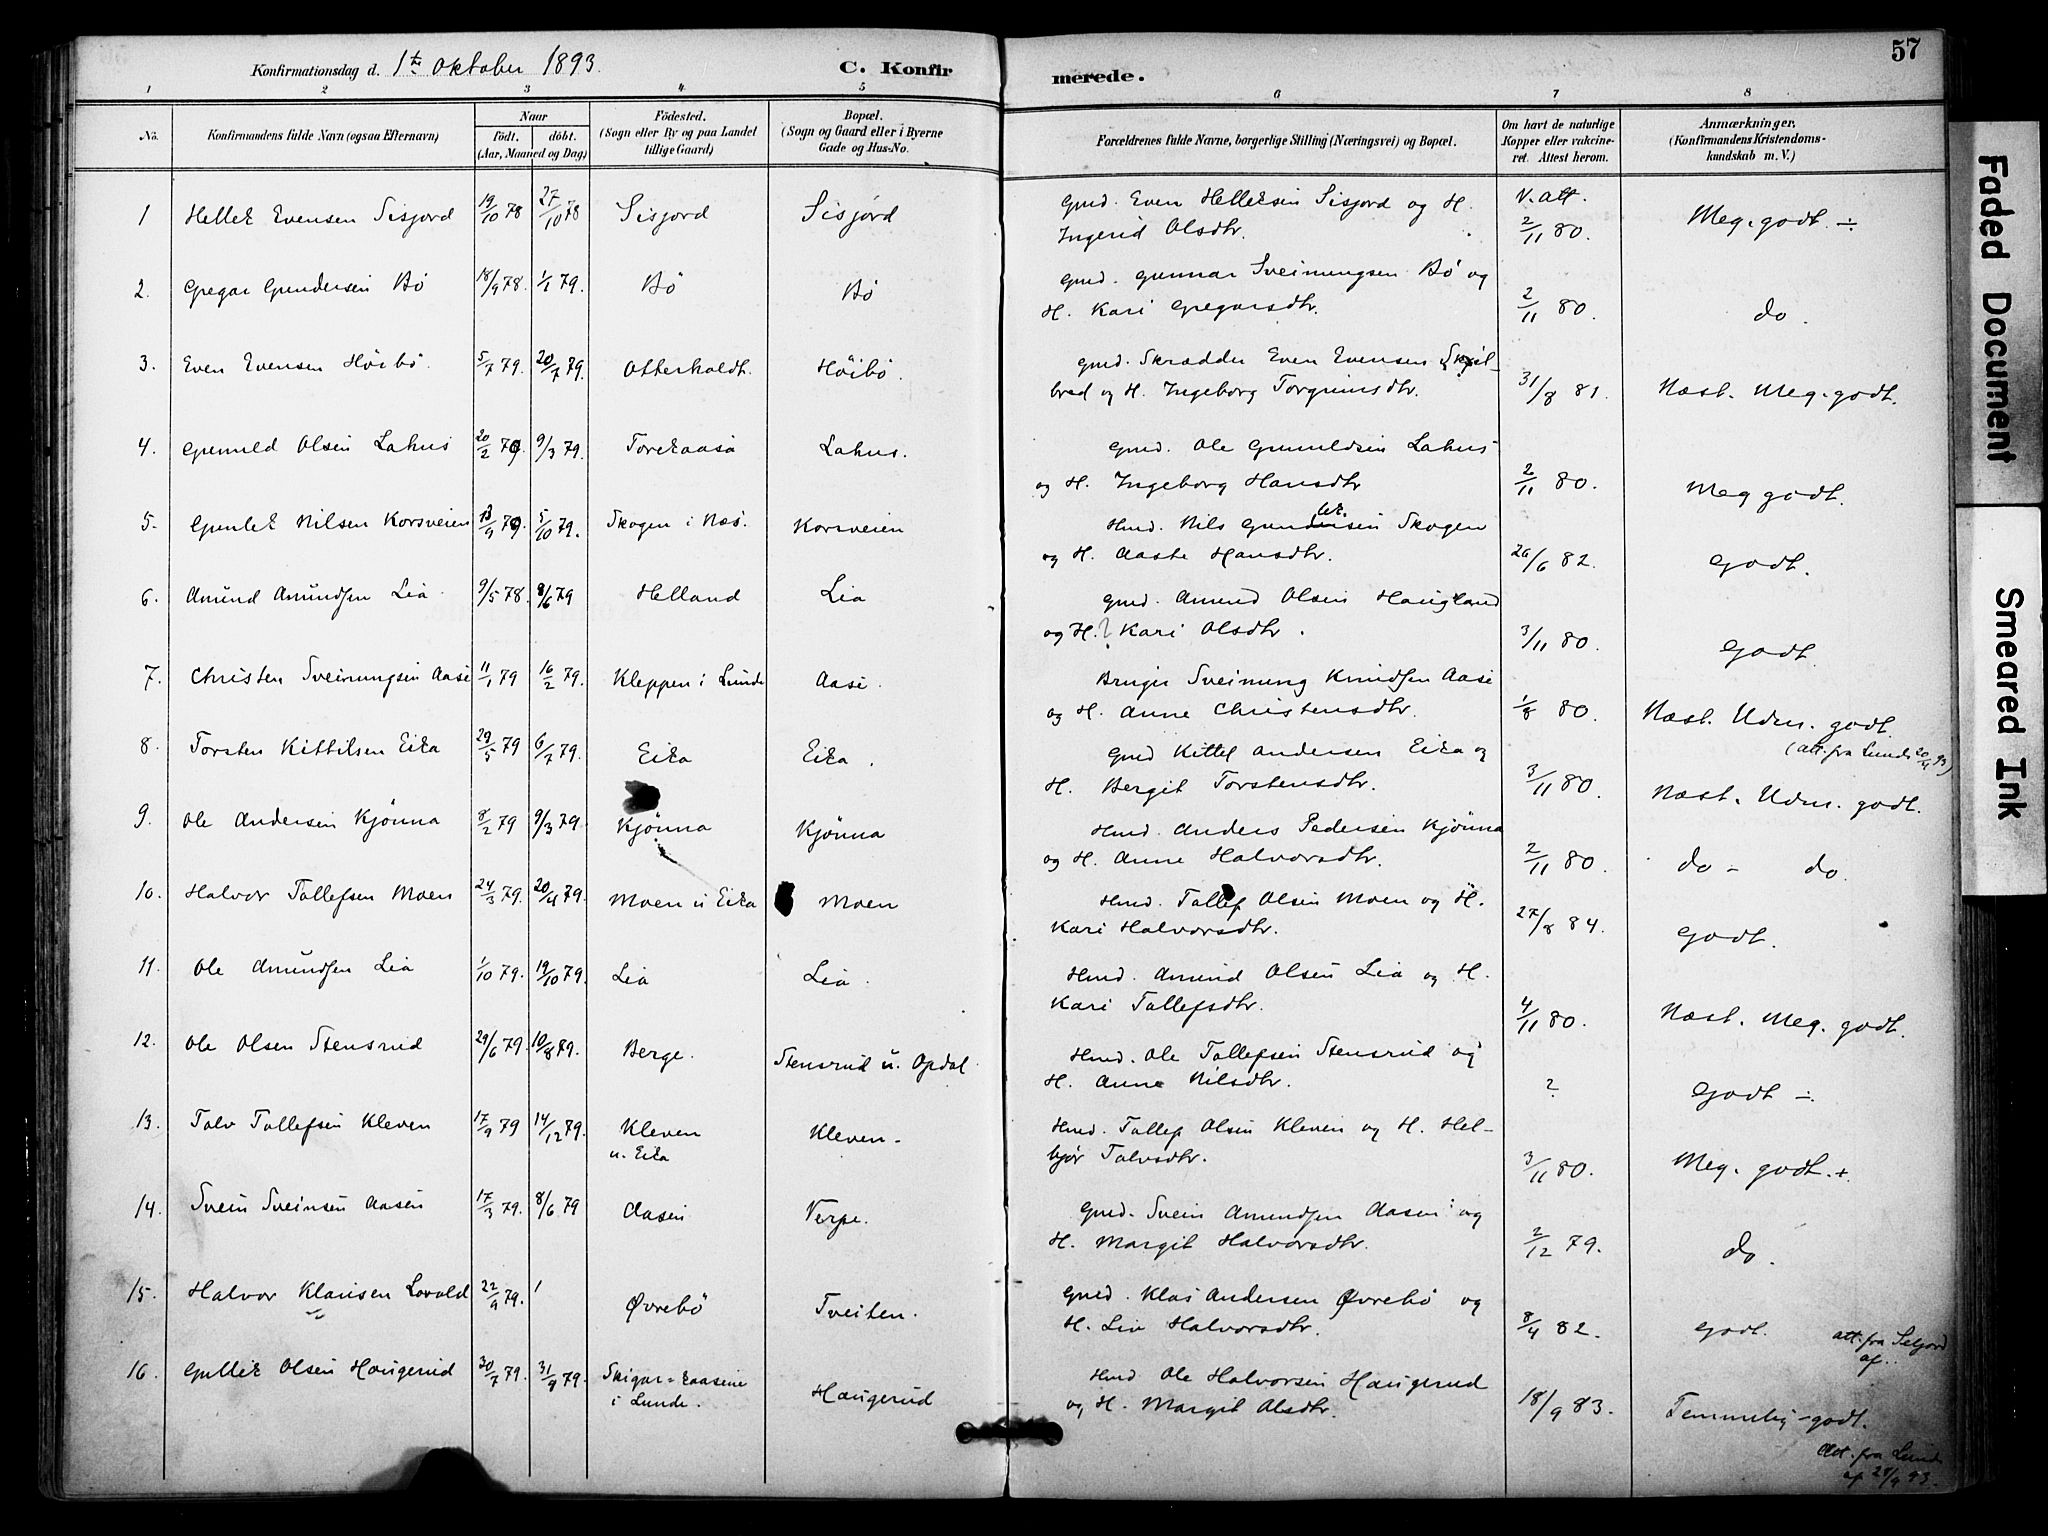 57
Konfirmationsdag d. 1te Oktober 1893. C. Konfirmerede.
1 2 3 4 5 6 7 8
No. Konfirmandens fulde Navn (ogsaa Efternavn) Naar født. døbt. (Aar, Maaned og Dag) Fødested. (Sogn eller By og paa Landet tillige Gaard) Bopæl. (Sogn og Gaard eller i Byerne Gade og Hus-No. Forældrenes fulde Navne, borgerlige Stilling (Næringsvei) og Bopæl. Om havt de naturlige Kopper eller vakcineret. Attest herom. Anmærkninger. (Konfirmandens Kristendomskundskab m. V.)
1 Hellek Evensen Sisjord 19/10 78 27/10 78 Sisjord Sisjord Gmd. Even Helleksen Sisjord og H. V. att.
Ingerid Olsdtr. 2/11 80. Meg. godt. ÷
2. Gregar Gundersen Bø 18/9 78. 1/1 79. Bø Bø Gmd. Gunnar Sveinungsen Bø og
H. Kari Gregarsdtr. 2/11 80. do.
3. Even Evensen Höibö. 5/7 79. 20/7 79. Otterholdt. Höibö. Gmd. Skrædder Even Evensen
bred og H. Ingeborg Torgrimsdtr. 31/8 81. Næst. Meg. godt.
4. Olsen Lahus 20/2 79 9/3 79. Torekaasa Lahus. Gmd. Ole Lahus
og H. Ingeborg Hansdtr 2/11 80. Meg godt.
5. Gunlek Nilsen Korsveien 13/9 79 5/10 79. Skogen i Næs. Korsveien Hmd. Nils Skogen
og H. Aaste Hansdtr. 26/6 82. Godt.
6. Amund Amundsen Lia 9/5 78. 8/6 79 Helland Lia Gmd. Amund Olsen Haugland
og H. Kari Olsdtr. 3/11 80. Godt.
7. Christen Sveinungsen Aase 11/1 79 16/2 79. Kleppen i Lunde Aase. Bruger Sveinung Knudsen Aase
og H. Anne Christensdtr. 1/8 80. Næst. Udm. godt.
(att. fra Lunde 20/9 93)
8. Torsten Kittilsen Eika 29/5 79 6/7 79. Eika Eika. Gmd Kittel Andersen Eika og
H. Bergit Torstensdtr. 3/11 80. Næst. Udm. godt.
9. Ole Andersen Kjönna 8/2 79 9/3 79. Kjönna Kjönna Hmd. Anders Pedersen Kjönna
og H. Anne Halvorsdtr. 2/11 80. do - do.
10. Halvor Tollefsen Moen 24/3 79. 20/4 79. Moen u Eika Moen Hmd. Tollef Olsen Moen og H.
Kari Halvorsdtr. 27/8 84. Godt.
11. Ole Amundsen Lia 1/10 79. 19/10 79. Lia Lia. Hmd. Amund Olsen Lia og H.
Kari Tollefsdtr. 4/11 80. Næst. Meg. godt.
12. Ole Olsen Stensrud 29/6 79. 10/8 79. Berge. Stensrud u. Opdal. Hmd. Ole Tollefsen Stensrud og
H. Anne Nilsdtr. ? Godt ÷
13. Talv Tollefsen Kleven 17/9 79 14/12 79. Kleven u. Eika Kleven. Hmd. Tollef Olsen Kleven og H. Hel-
björ Talvsdtr. 3/11 80. Meg. godt. +
14. Svein Sveinsen Aasen 17/3 79. 8/6 79 Aasen Verpe. Gmd. Svein Amundsen Aasen og
H. Margit Halvorsdtr. 2/12 79. do.
15. Halvor Klausen Lovald 22/9 79. Øvrebö Tveiten. Gmd. Klas Andersen Øvrebö og
H. Liv Halvorsdtr. 8/4 82. Godt. att. fra Seljord
af..
16. Gullik Olsen Haugerud 30/7 79. 31/9 79. i Lunde. Haugerud Hmd Ole Halvorsen Haugerud
og H. Margit Olsdtr. 18/9 83. Temmelig godt.
Att. fra Lunde
af 28/9 93.
Faded Document
Smeared Ink